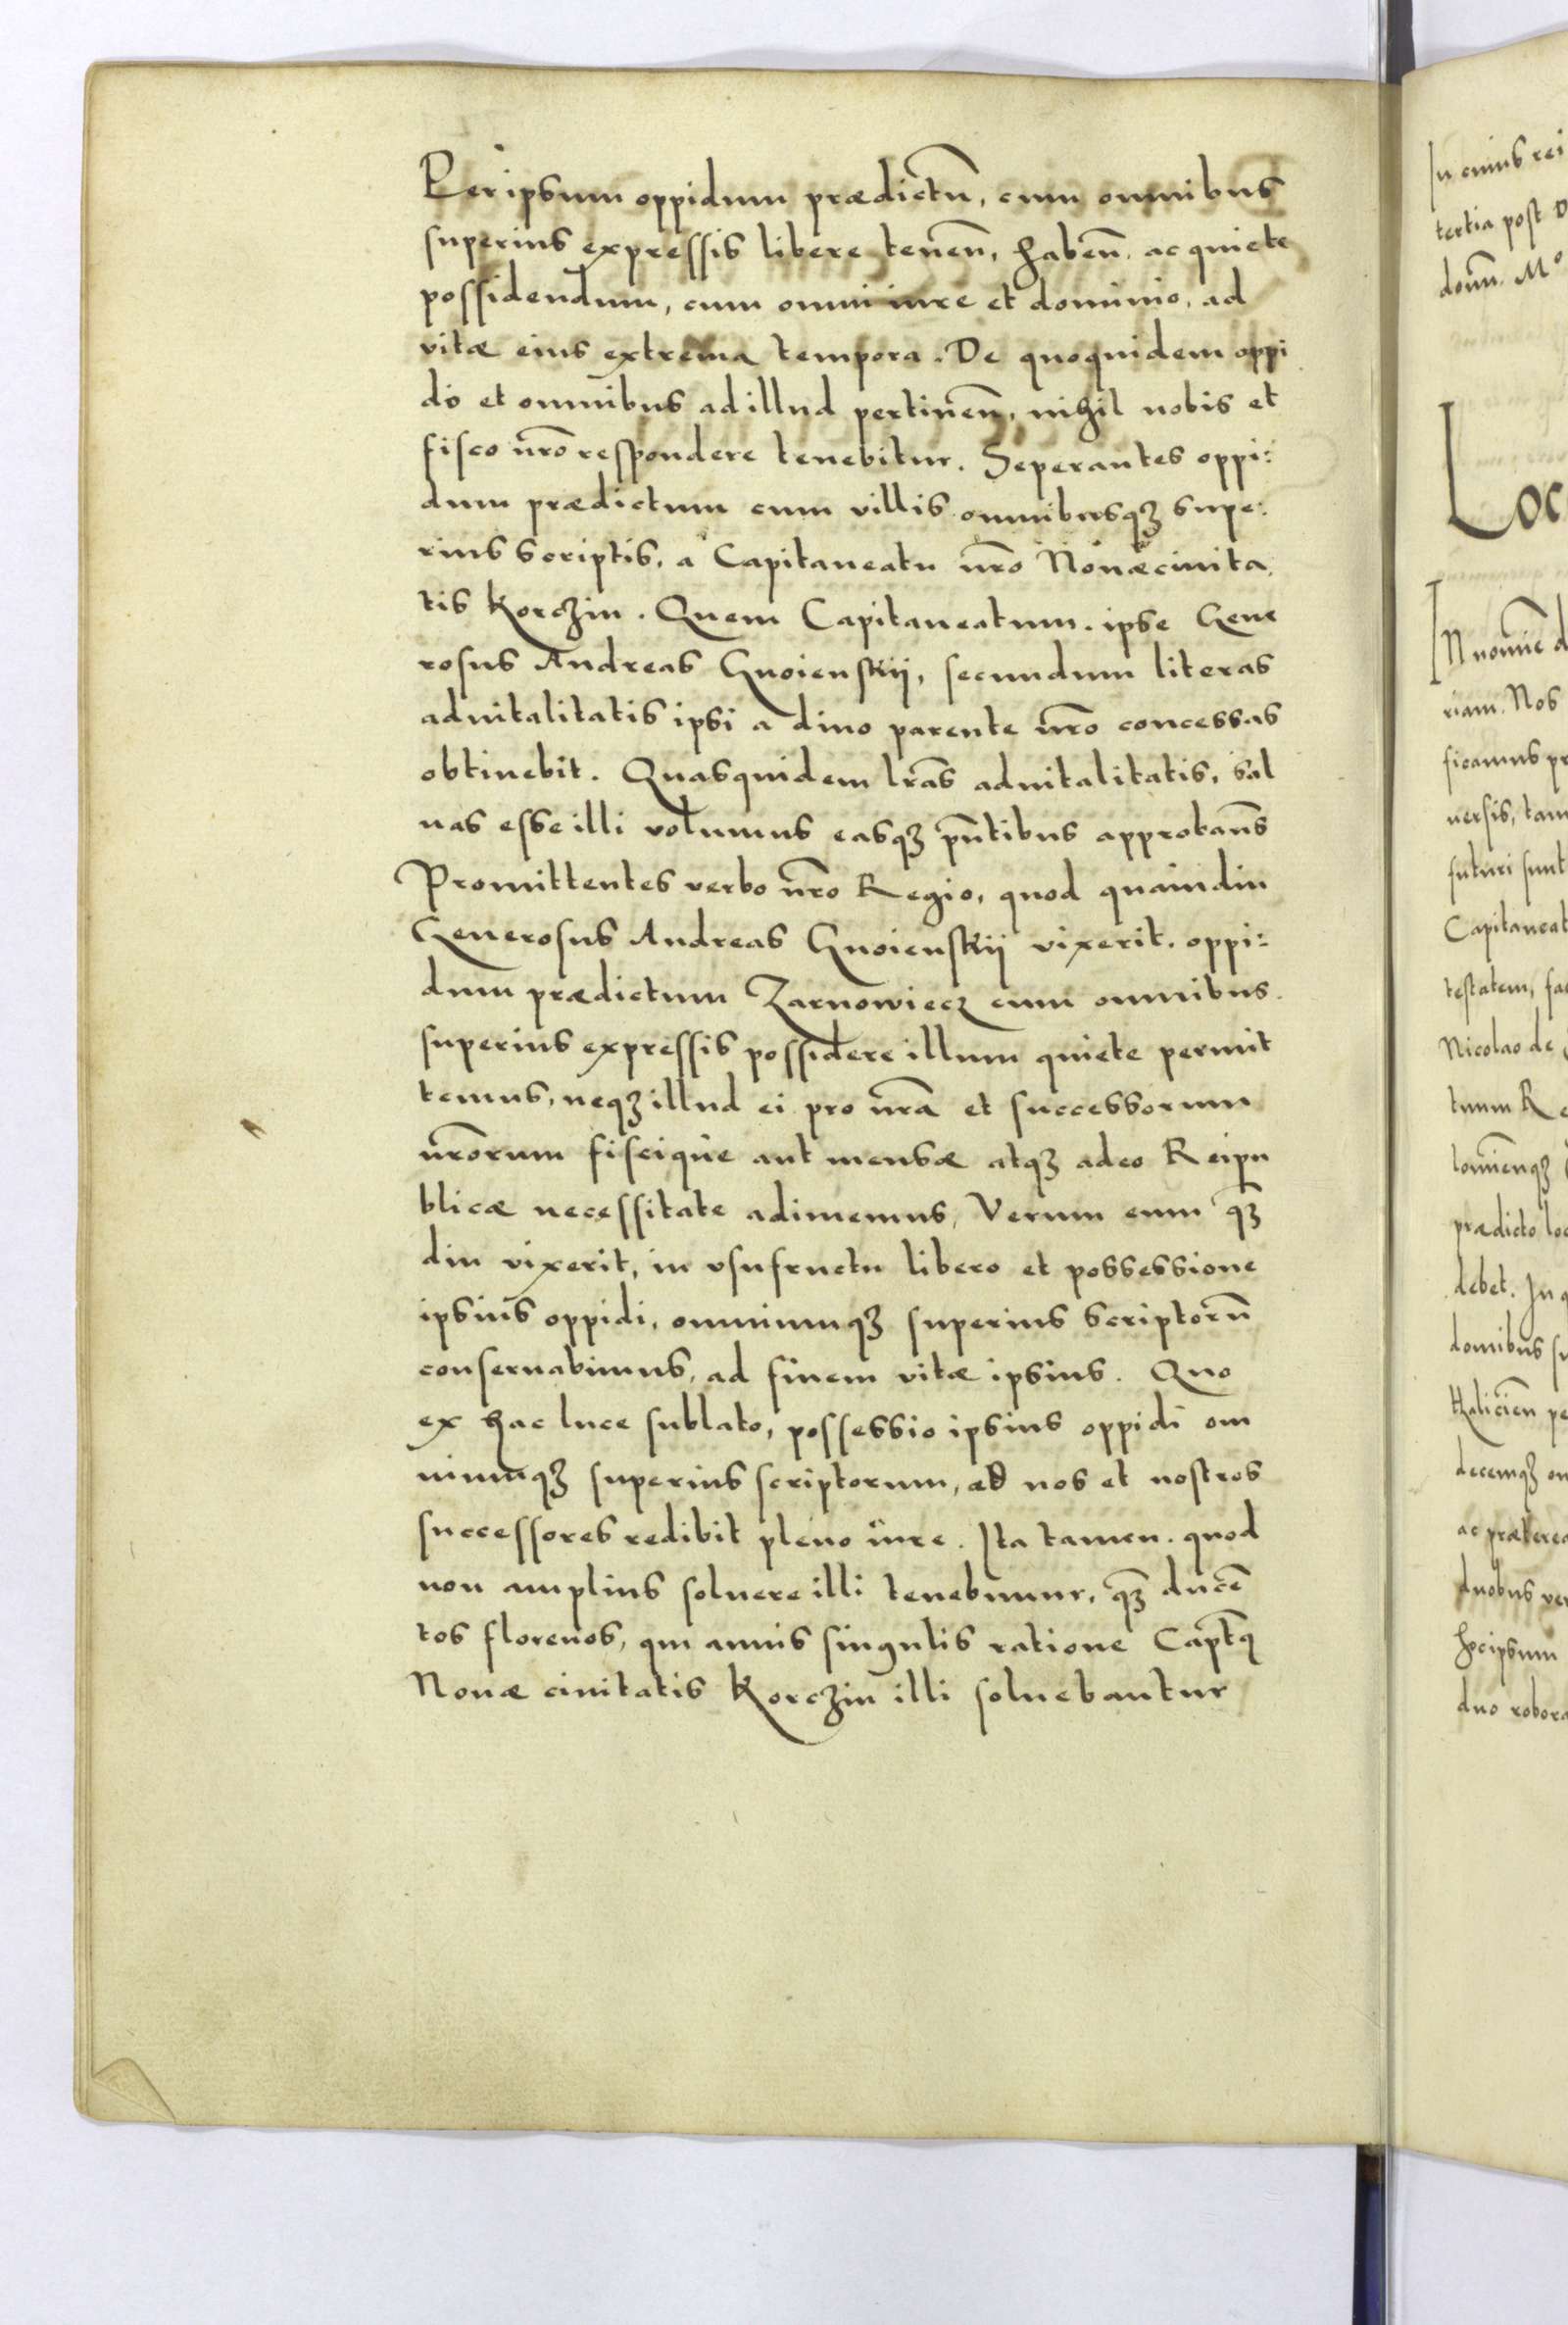 Per ipsum oppidum prædictũ, cum omnibus
superius expressis libere teneñ, habeñ. ac quiete
possidendum, cum omni iure et dominio, ad
vitæ eius extrema tempora. De quoquidem oppi
do et omnibus ad illud pertineñ, nihil nobis et
fisco ñro respondere tenebitur. Seperantes oppi:
dum prædictum cum villis omnibusqȝ supe:
rius scriptis, a Capitaneatu ñro Nouæciuita,
tis Korczin. Quem Capitaneatum. ipse Gene
rosus Andreas Gnoienskij, secundum literas
aduitalitatis ipsi a diuo parente ñro concessas
obtinebit. Quasquidem lr̃as aduitalitatis, sal
uas esse illi volumus easqȝ pñtibus approbañs
Promittentes verbo ñro Regio, quod quamdiu
Generosus Andreas Gnoienskij vixerit. oppi:
dum prædictum Zarnowiecz cum omnibus.
superius expressis possidere illum quiete permit
temus, neqȝ illud ei pro ñra et successorum
ñrorum fiscique aut mensæ atqȝ adeo Reipu
blicæ necessitate adimemus, Verum eum q̃ȝ
diu vixerit, in vsufructu libero et possessione
ipsius oppidi, omniumqȝ superius scriptorũ
conseruabimus, ad finem vitæ ipsius. Quo
ex hac luce sublato, possessio ipsius oppidi om
niumqȝ superius scriptorum, ad nos et nostros
successores redibit pleno iure. Ita tamen. quod
non amplius soluere illi tenebimur, q̃ȝ ducẽ
tos florenos, qui annis singulis ratione Capt̃q
Nouæ ciuitatis Korczin illi soluebantur
In cuius rei
tertia post
doñi. Mº
Loc
IN nomiñe d
riam. Nos
ficamus pr
uersis, tam
futuri sunt
Capitaneat
testatem, fac
Nicolao de
tuum Re
lomieñqȝ
prædicto loc
debet. In q
domibus su
Halicieñ pe
decemqȝ on
ac præterea
duobus ver
hocipsum
duo robora